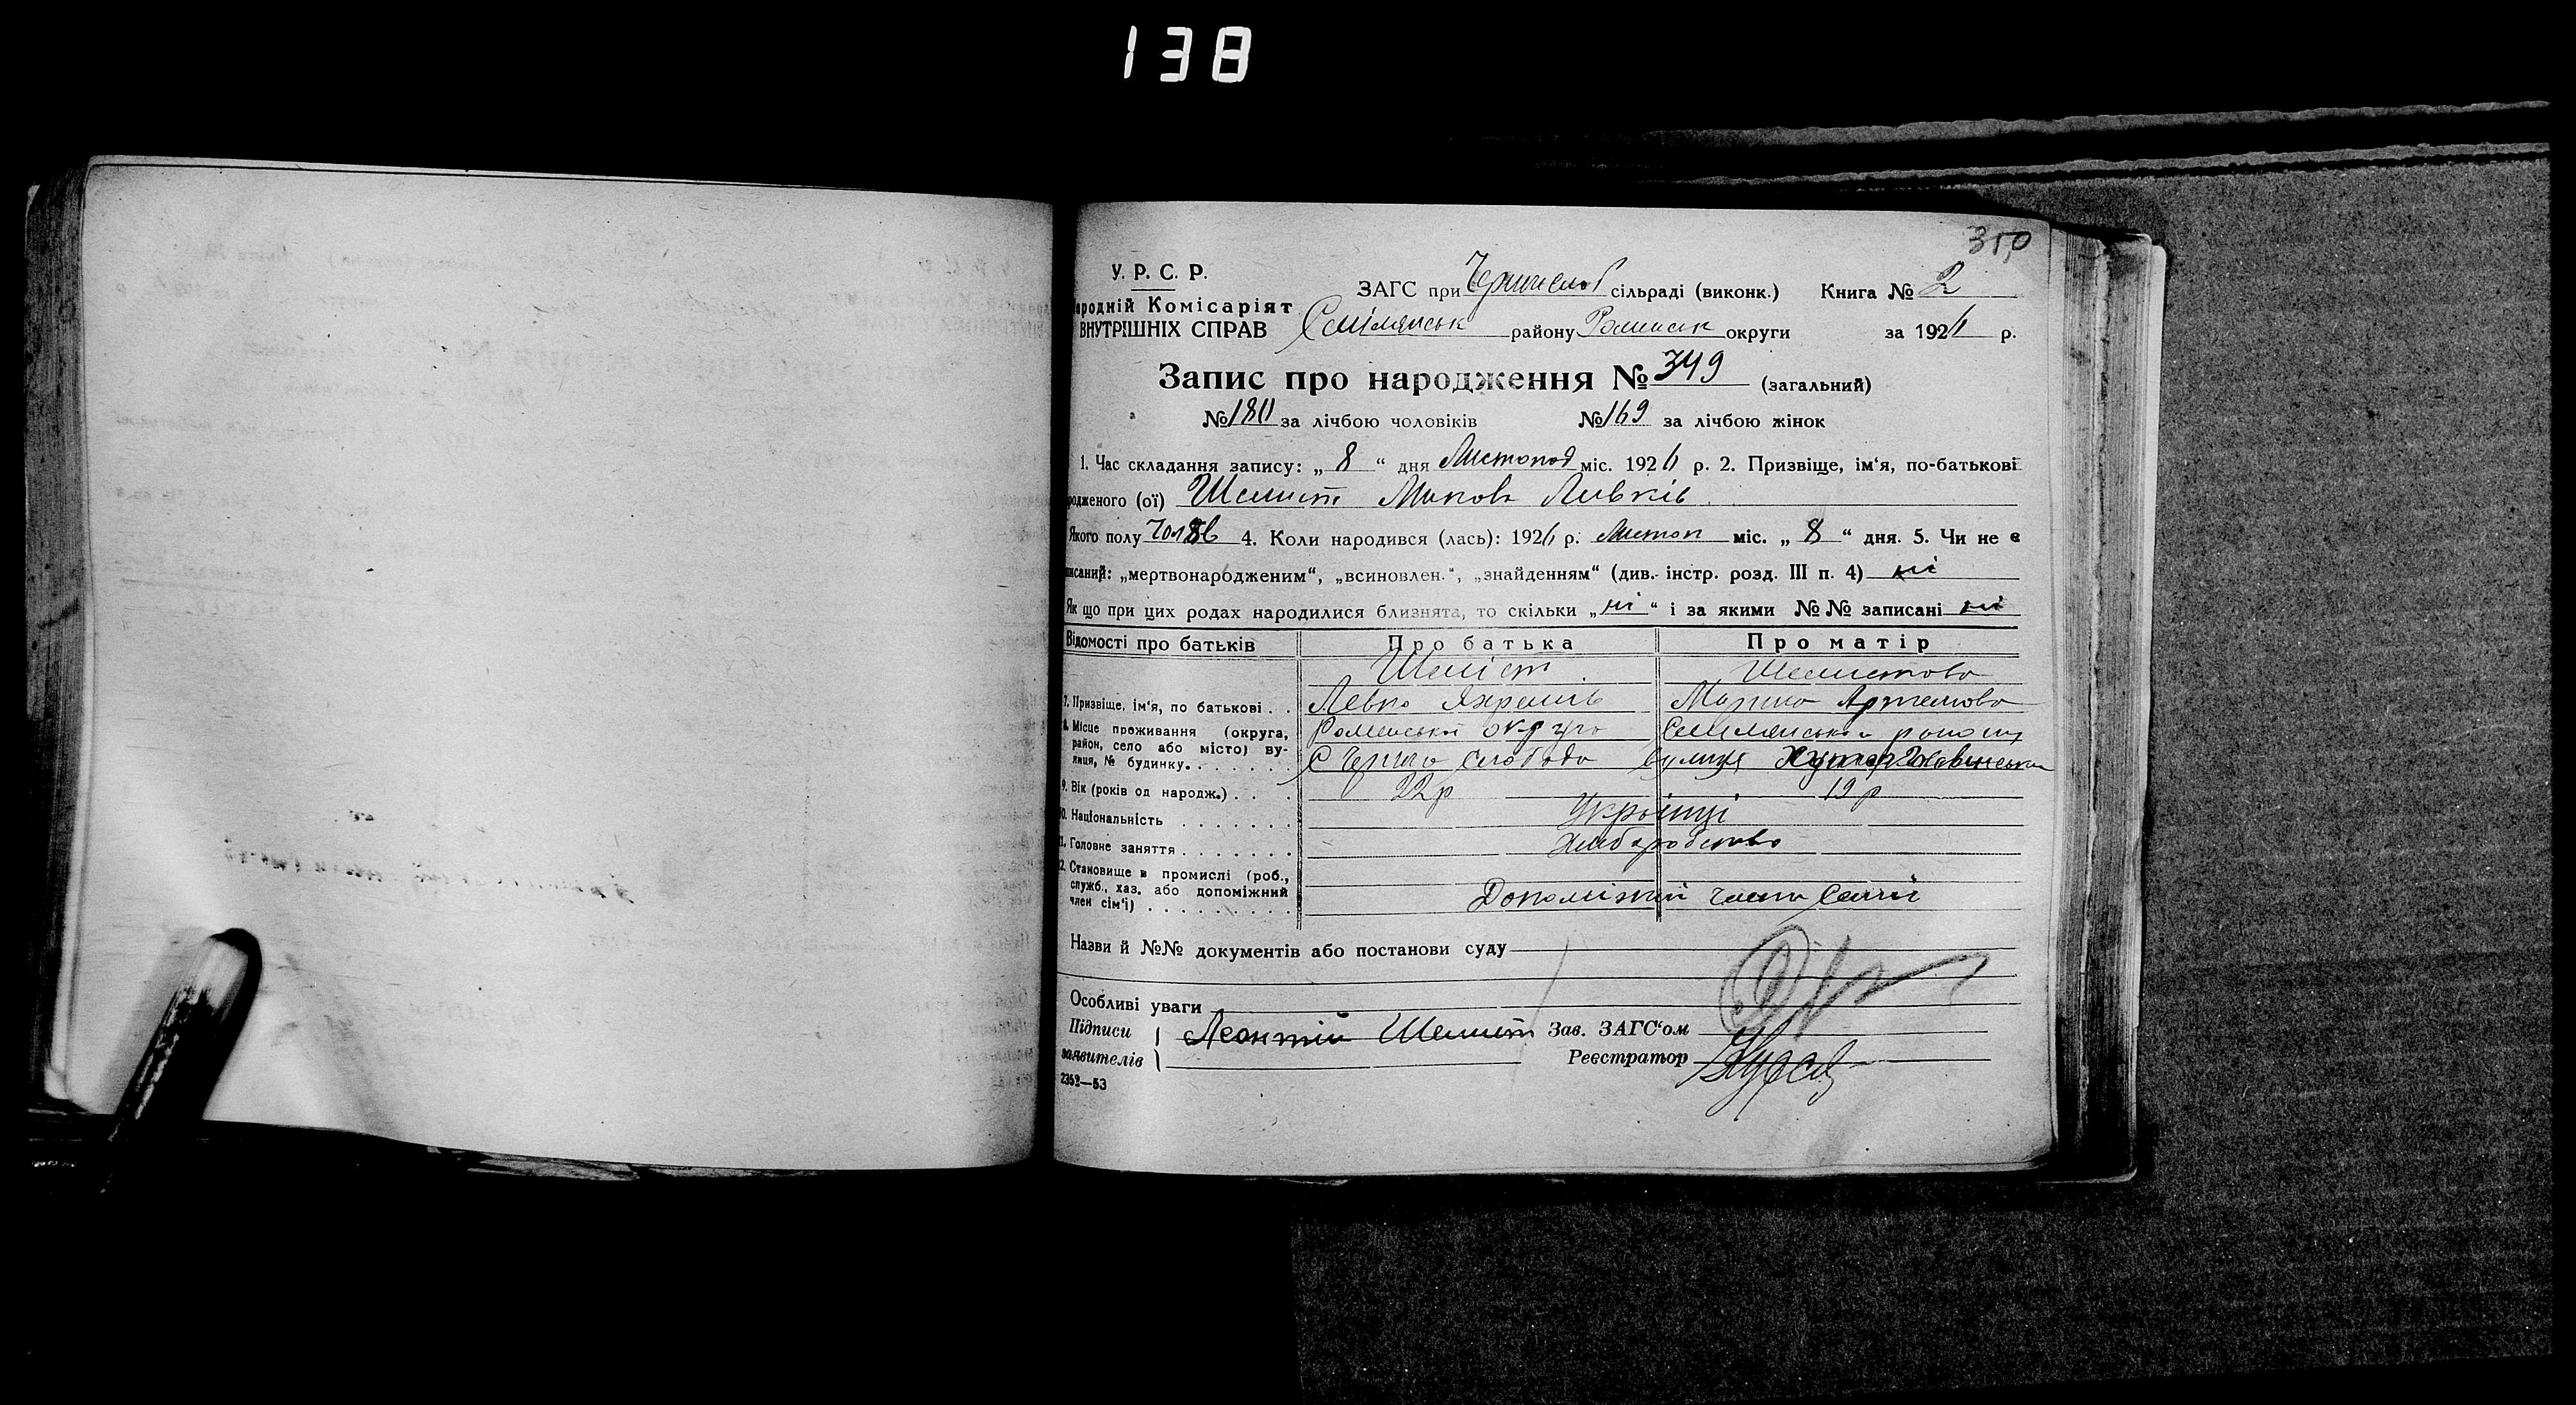 138
350
У. Р. С. Р.
ародній Комісаріят
ВНУТРІШНІХ СПРАВ
ЗАГС при сільраді (виконк.) Книга № 2
Смілянськ району Роменськ округи за 192 р.
Запис про народження № 349 (загальний)
№ 180 за лічбою чоловіків № 169 за лічбою жінок
1. Час складання запису: „ 8 “ дня Листопад міс. 192 р. 2. Призвіще, ім‘я, по-батькові
родженого (ої) Шелист Левків
Якого полу 4. Коли народився (лась): 192 р. Листоп міс. „ 8 “ дня. 5. Чи не є
писаний: „мертвонародженим“, „всиновлен.“, „знайденням“ (див. інстр. розд. III п. 4) ні
Як що при цих родах народилися близнята, то скільки „ ні “ і за якими №№ записані ні
Відомості про батьків Про батька Про матір
Шеліст Шелистова
7. Призвіще, ім‘я, по батькові . . Левко Марина Артемова
8. Місце проживання (округа, Роменської округи Смілянського району
район, село або місто) ву-
лиця, № будинку. . . . . . . С Черна Слобода вулиця Хутор
9. Вік (років од народж.) . . . 22 р 19 р
10. Національність . . . . . . . Українці
11. Головне заняття . . . . . . . Хліборобство
12. Становище в промислі (роб.,
служб., хаз. або допоміжний
член сім‘ї) . . . . . . . . . Допоміжний члени семії
Назви й №№ документів або постанови суду
Особливі уваги
Підписи Леонтій Шелист Зав. ЗАГС‘ом
заявителів Реєстратор
2352—53